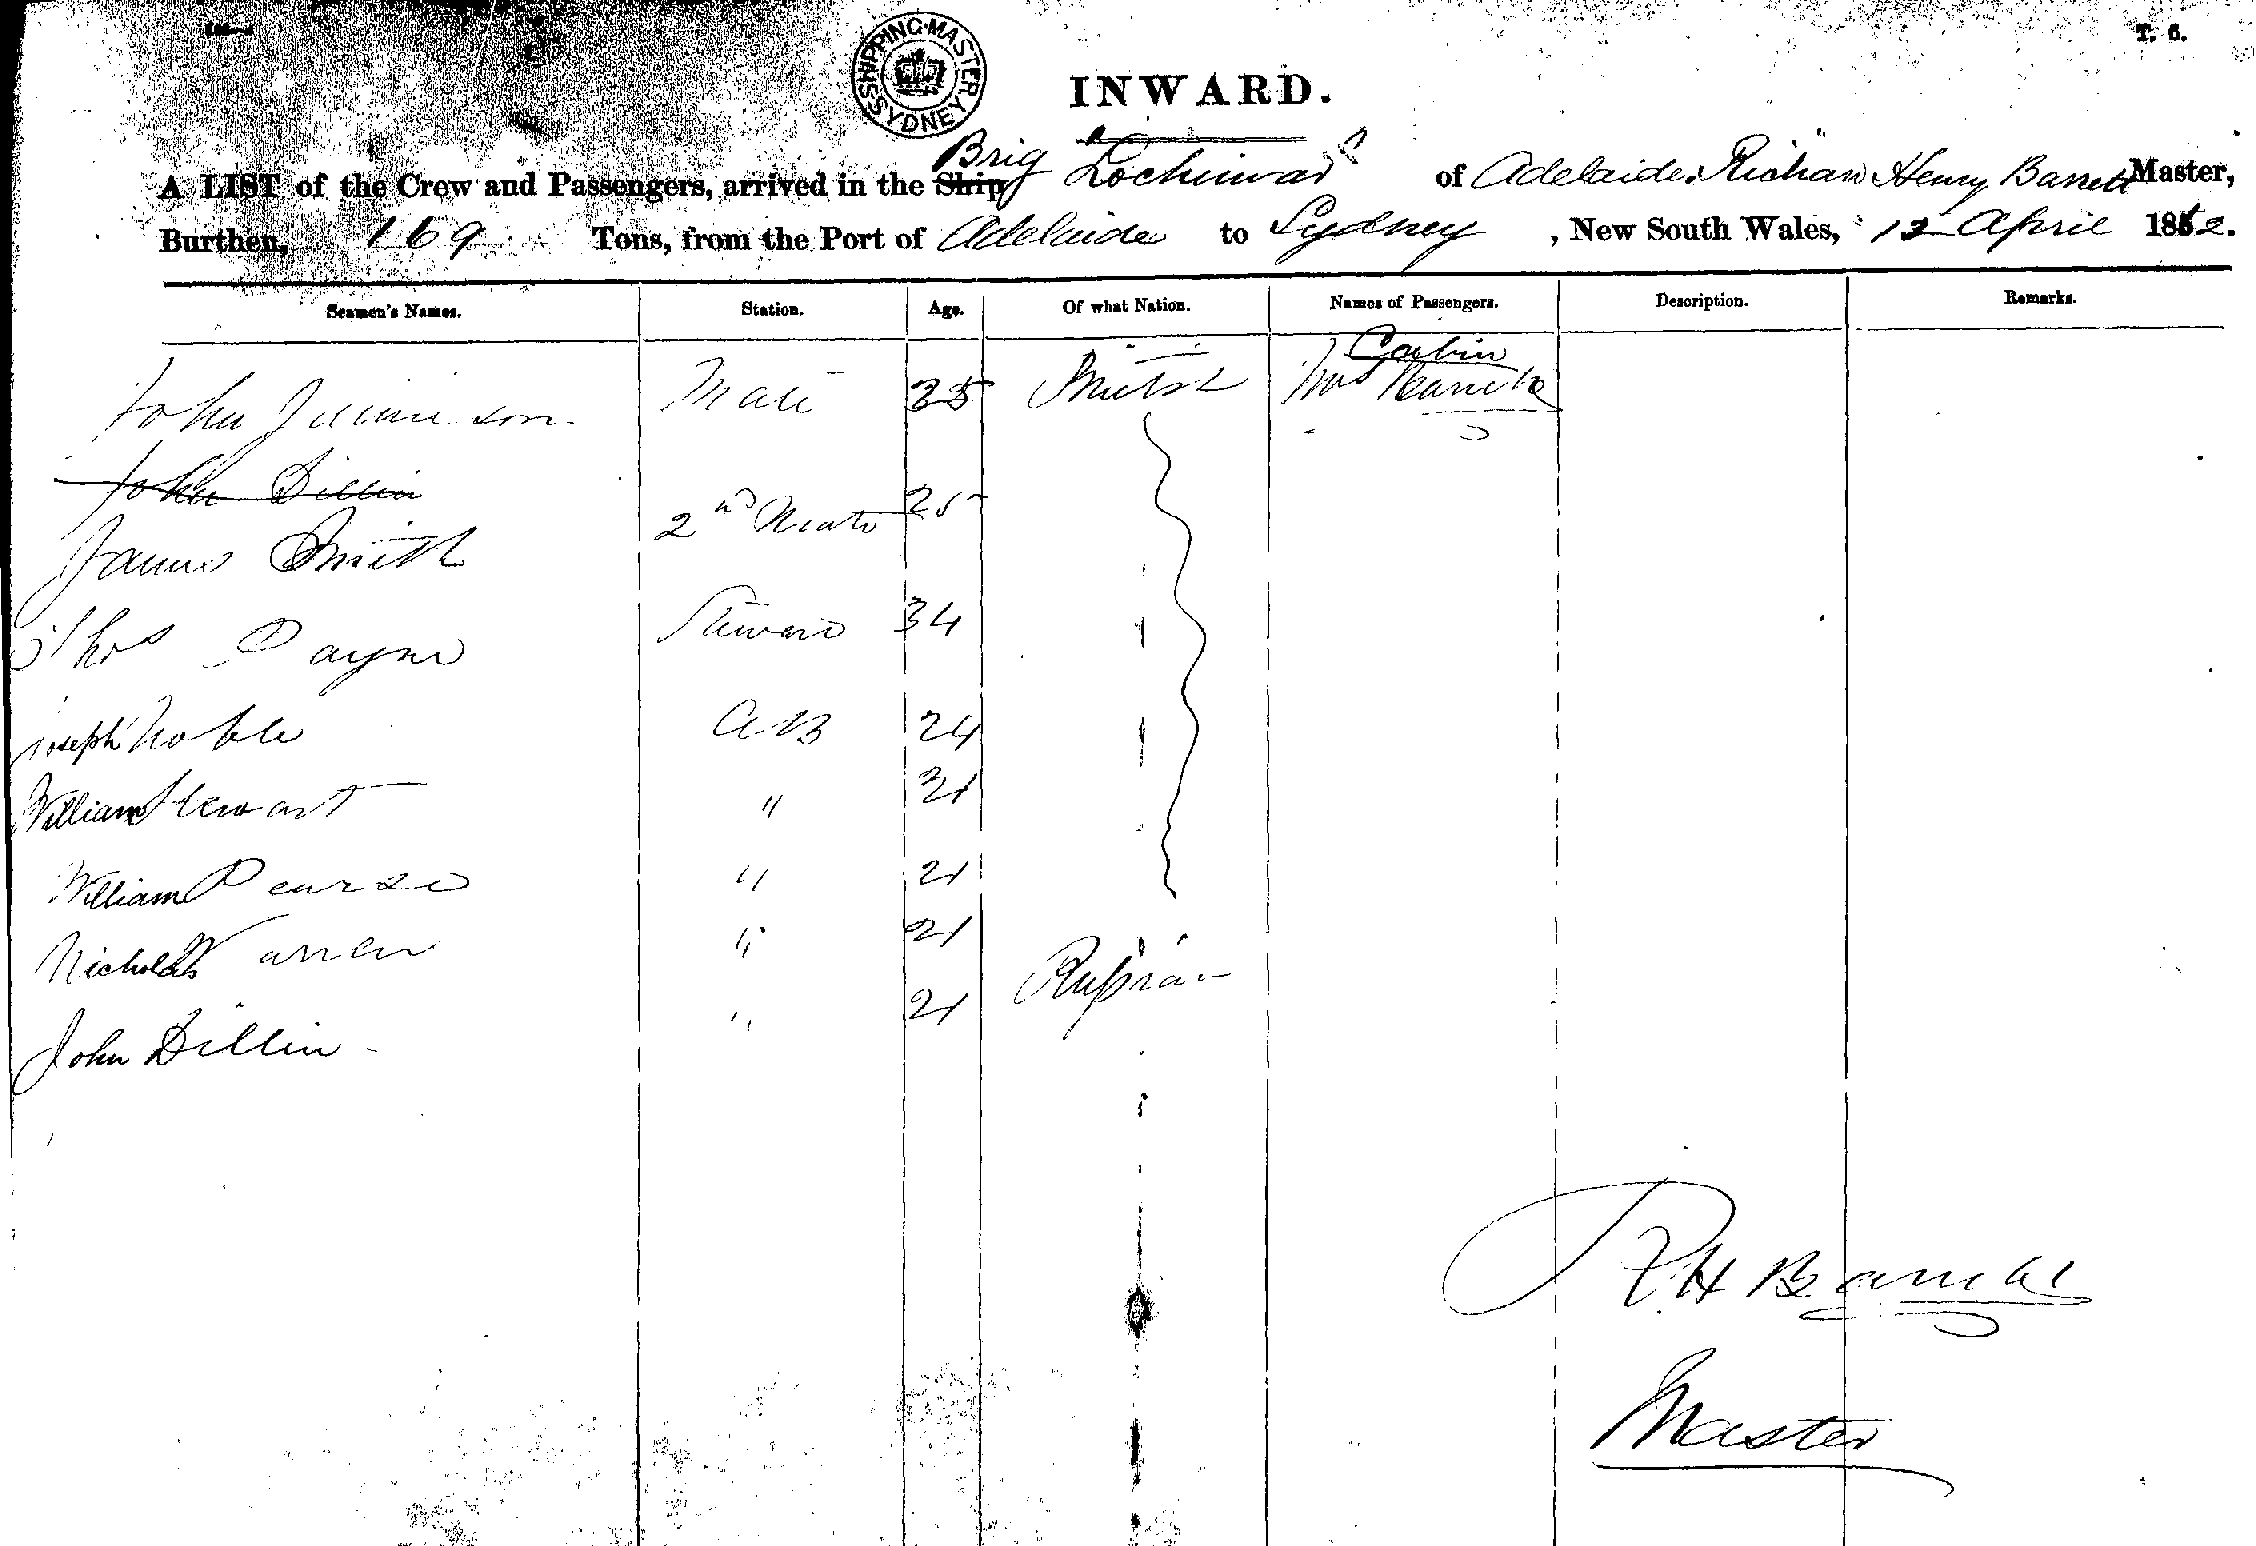 SHIPPING MASTER SYDNEY
T. 6.
INWARD.
A LIST of the Crew and Passengers, arrived in the Ship Brig Lochinvar of Adelaide, Richard Henry Barrett Master,
Burthen, 169 Tons, from the Port of Adelaide to Sydney, New South Wales, 12 April 1862.
Seamen's Names. Station. Age. Of what Nation. Names of Passengers. Description. Remarks.
Cabin
John Mate 35 British Mrs Barrett
John Dillin
James Smith 2nd Mate 25
Thos Payne Steward 34
Joseph Noble AB 24
William Stewart " 21
William Pearse " 21
Nicholas Warren " 21
John Dillin " 21 Russian
R H Barrett
Master